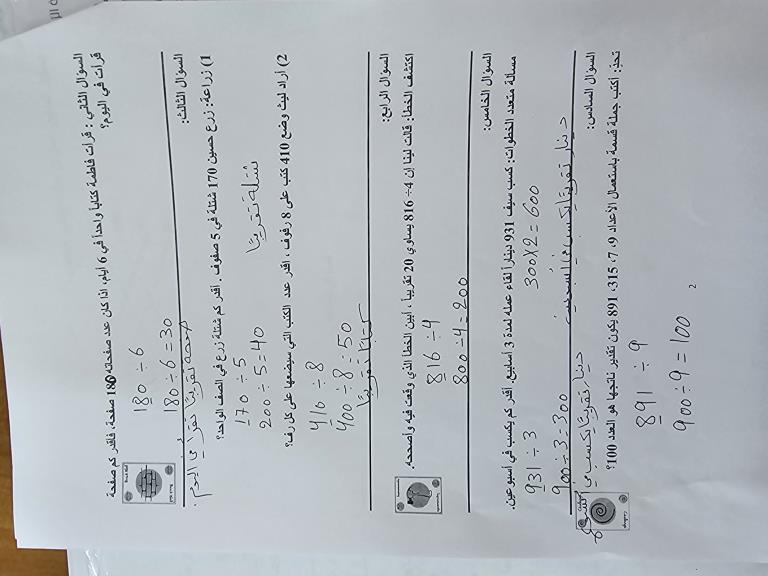 السؤال الثاني : قرأت فاطمة كتابا واحداً في 6 أيام، اذا كان عدد صفحاته 180 صفحة، فأقدر كم صفحة
قرأت في اليوم؟
180 ÷ 6
180 ÷ 6 = 30
صفحة تقريبًا تقرأ في اليوم.
السؤال الثالث:
1) زراعة: زرع حسين 170 شتلة في 5 صفوف . أقدر كم شتلة زرع في الصف الواحد؟
170 ÷ 5
200 ÷ 5 = 40
شتلة تقريبًا
2) أراد ليث وضع 410 كتب على 8 رفوف ، اقدر عدد الكتب التي سيضعها على كل رف؟
410 ÷ 8
400 ÷ 8 = 50
كتابًا تقريبًا
السؤال الرابع:
اكتشف الخطأ: قالت لينا إن 4÷ 816 يساوي 20 تقريباً ، أبين الخطأ الذي وقعت فيه وأصححه
816 ÷ 4
800 ÷ 4 = 200
السؤال الخامس:
مسالة متعدد الخطوات: كسب سيف 931 دينارا لقاء عمله لمدة 3 أسابيع. أقدر كم يكسب في أسبوعين.
931 ÷ 3
300 × 2 = 600
900 ÷ 3 = 300
دينار تقريبًا يكسب في
دينار تقريبًا يكسب في
السؤال السادس:
تحد: أكتب جملة قسمة باستعمال الأعداد 9، 7، 315، 891 يكون تقدير ناتجها هو العدد 100؟
891 ÷ 9
900 ÷ 9 = 100
2